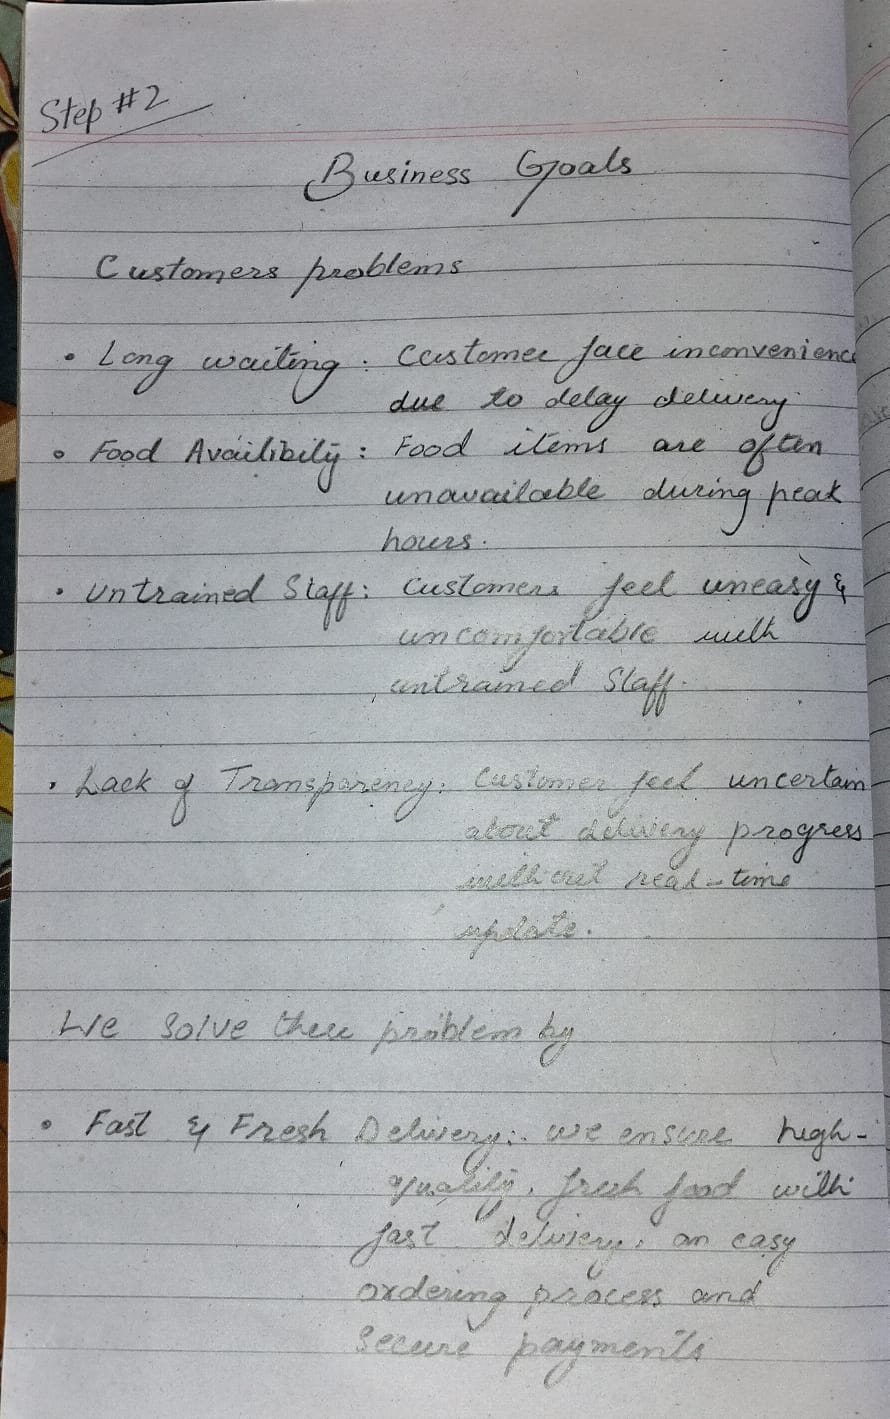 Step #2
Business Goals
Customers problems
• Long waiting : Customer face inconvenienc
due to delay delivery
• Food Availibily : Food items are often
unavailable during peak
hours.
• Untrained Staff : Customers feel uneasy &
uncomfortable with
untrained Staff.
• Lack of Transparency : Customer feel uncertain
about delivery progress
without real-time
update.
We Solve these problem by
• Fast & Fresh Delivery :. we ensure high-
quality, fresh food with
fast delivery, an easy
ordering process and
secure payments